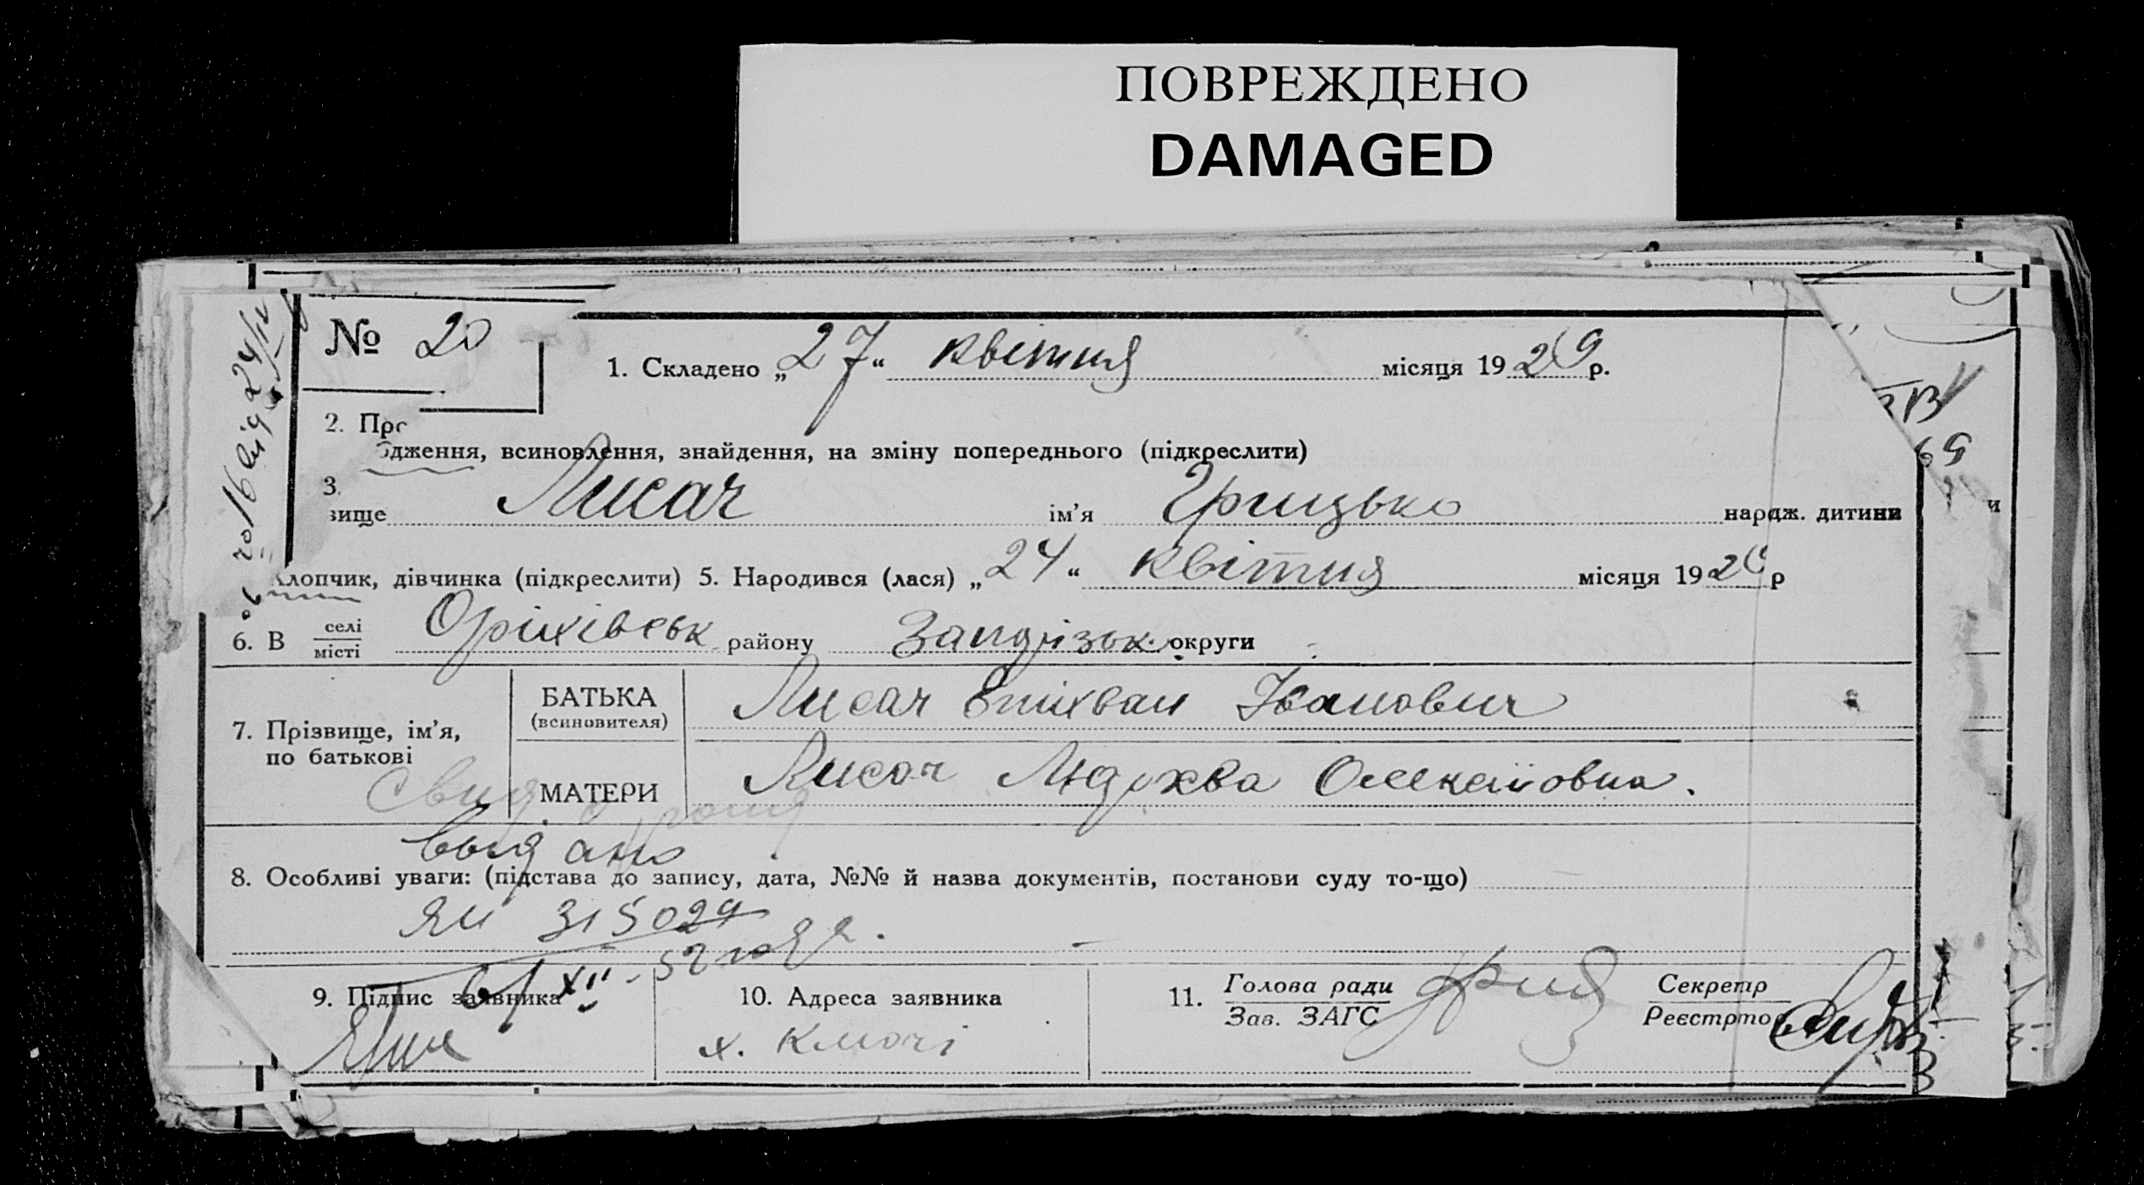 ПОВРЕЖДЕНО
DAMAGED
№ 20
1. Складено „27“ квітня місяця 1929 р.
2. Про
одження, всиновлення, знайдення, на зміну попереднього (підкреслити)
3.
вище Лисач ім'я Грицько нардж. дитини
хлопчик, дівчинка (підкреслити) 5. Народився (лася) „24“ квітня місяця 1929 р
6. В селі
місті Оріхівськ району Запорізьк. округи
7. Прізвище, ім'я,
по батькові
БАТЬКА
(всиновителя)
Лисач Іванович
МАТЕРИ
Лисач Олексіївна.
Свид. о рожд
выдано
8. Особливі уваги: (підстава до запису, дата, №№ й назва документів, постанови суду то-що)
ЯИ 315029
6/XII-52 года.
9. Підпис заявника
10. Адреса заявника
х. Ключі
11. Голова ради
Зав. ЗАГС
Секретр
Реєстртор